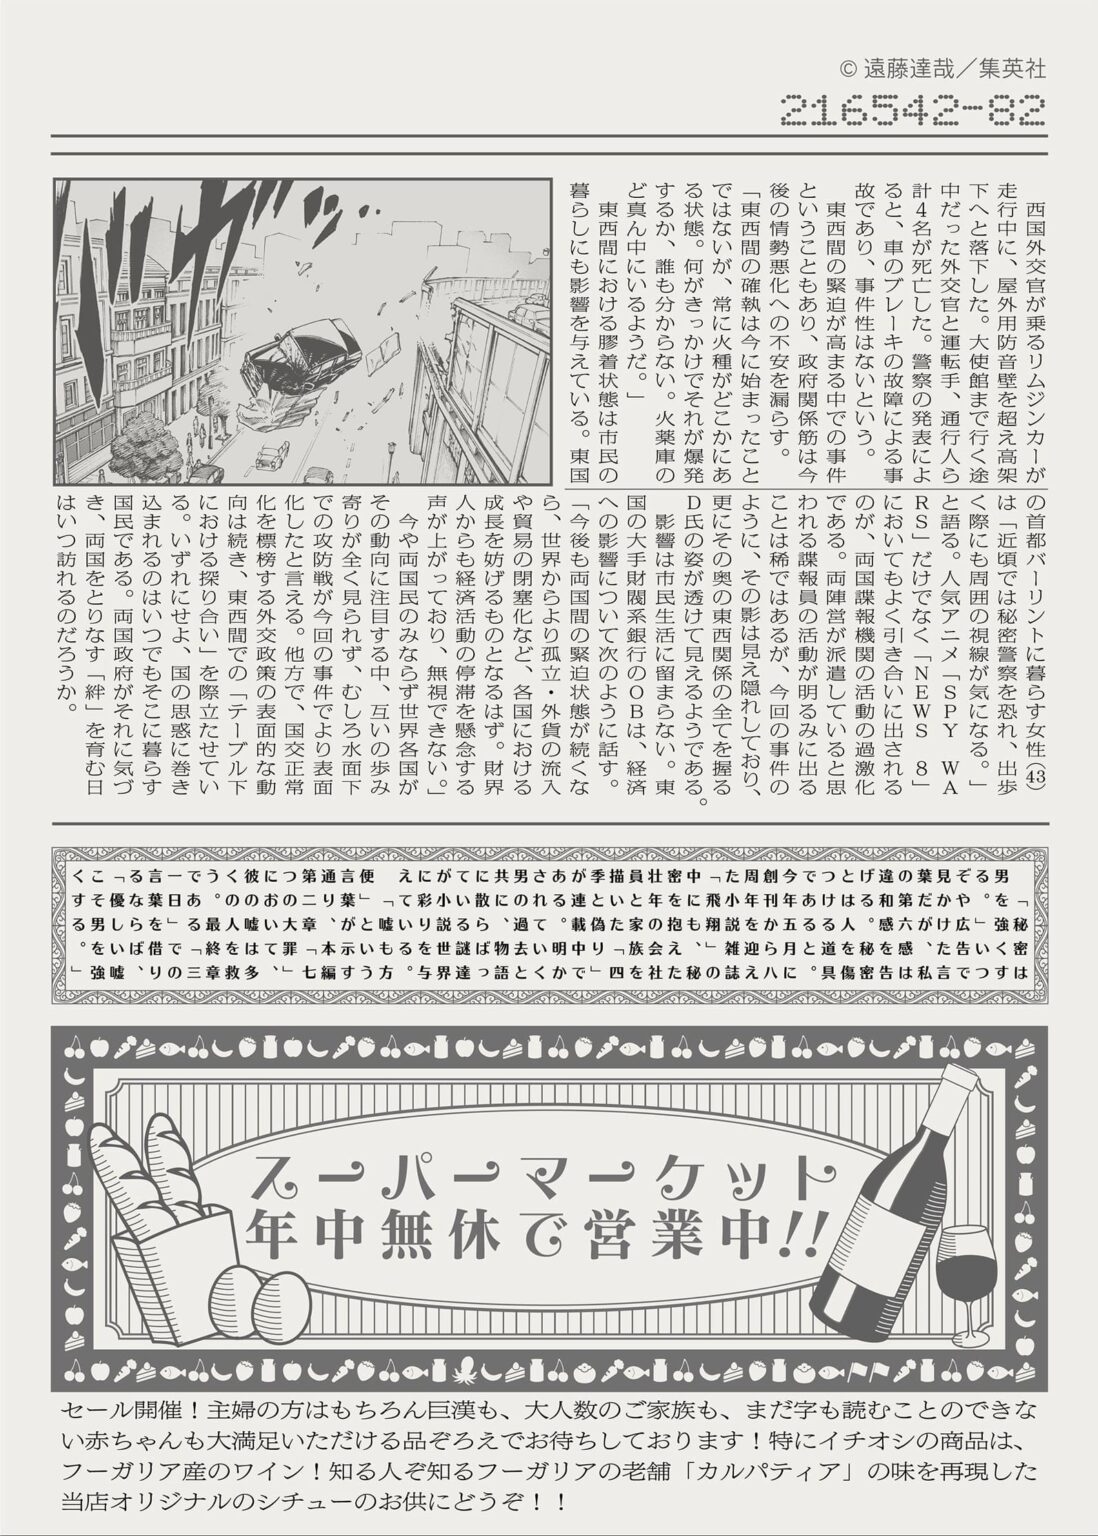 © 遠藤達哉／集英社
216542-82
西国外交官が乗るリムジンカーが
走行中に、屋外用防音壁を超え高架
下へと落下した。大使館まで行く途
中だった外交官と運転手、通行人ら
計4名が死亡した。警察の発表によ
ると、車のブレーキの故障による事
故であり、事件性はないという。
東西間の緊迫が高まる中での事件
ということもあり、政府関係筋は今
後の情勢悪化への不安を漏らす。
「東西間の確執は今に始まったこと
ではないが、常に火種がどこかにあ
る状態。何がきっかけでそれが爆発
するか、誰も分からない。火薬庫の
ど真ん中にいるようだ。」
東西間における膠着状態は市民の
暮らしにも影響を与えている。東国
の首都バーリントに暮らす女性(43)
は「近頃では秘密警察を恐れ、出歩
く際にも周囲の視線が気になる。」
と語る。人気アニメ「SPY WA
RS」だけでなく、「NEWS 8」
においてもよく引き合いに出される
のが、両国諜報機関の活動の過激化
である。両陣営が派遣していると思
われる諜報員の活動が明るみに出る
ことは稀ではあるが、今回の事件の
ように、その影は見え隠れしており、
更にその奥の東西関係の全てを握る
D氏の姿が透けて見えるようである。
影響は市民生活に留まらない。東
国の大手財閥系銀行のOBは、経済
への影響について次のように話す。
「今後も両国間の緊迫状態が続くな
ら、世界からより孤立・外貨の流入
や貿易の閉塞化など、各国における
成長を妨げるものとなるはず。財界
人からも経済活動の停滞を懸念する
声が上がっており、無視できない。」
今や両国民のみならず世界各国が
その動向に注目する中、互いの歩み
寄りが全く見られず、むしろ水面下
での攻防戦が今回の事件でより表面
化したと言える。他方で、国交正常
化を標榜する外交政策の表面的な動
向は続き、東西間での「テーブル下
における探り合い」を際立たせてい
る。いずれにせよ、国の思惑に巻き
込まれるのはいつでもそこに暮らす
国民である。両国政府がそれに気づ
き、両国をとりなす「絆」を育む日
はいつ訪れるのだろうか。
「秘密は
男を強くす
る。」いつ
ぞや広告で
見かけた言
葉だが、私
の第六感は
違和感を告
げる。秘密
とは人を傷
つける道具
であると。
今年五月に
創刊から八
周年を迎え
た小説雑誌
「飛翔」の
中にも、秘
密を抱えた
壮年の会社
員と家族を
描いた「四
季と偽り」
が連載中で
ある。明か
されていく
男の過去と
共に、物語
に散らばっ
ている謎達
が小説世界
に彩りを与
えている。
「嘘も方
便」という
言葉が示す
通り、本編
第二章「七
つの大罪」
において、
彼の嘘は多
くの人を救
う。最終章
である「三
一日」での
言葉を借り
るならば、
「優しい嘘
こそ男を強
くする。」
スーパーマーケット
年中無休で営業中!!
セール開催！主婦の方はもちろん巨漢も、大人数のご家族も、まだ字も読むことのできな
い赤ちゃんも大満足いただける品ぞろえでお待ちしております！特にイチオシの商品は、
フーガリア産のワイン！知る人ぞ知るフーガリアの老舗「カルパティア」の味を再現した
当店オリジナルのシチューのお供にどうぞ！！